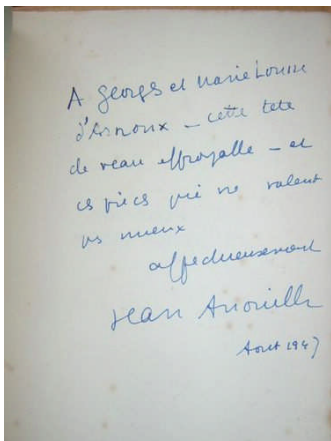 A Georges et Marie Louise
d'Arnoux - cette tete
de veau effroyable - et
ces pièces qui ne valent
pas mieux
affectueusement
Jean Anouilh
Aout 1947